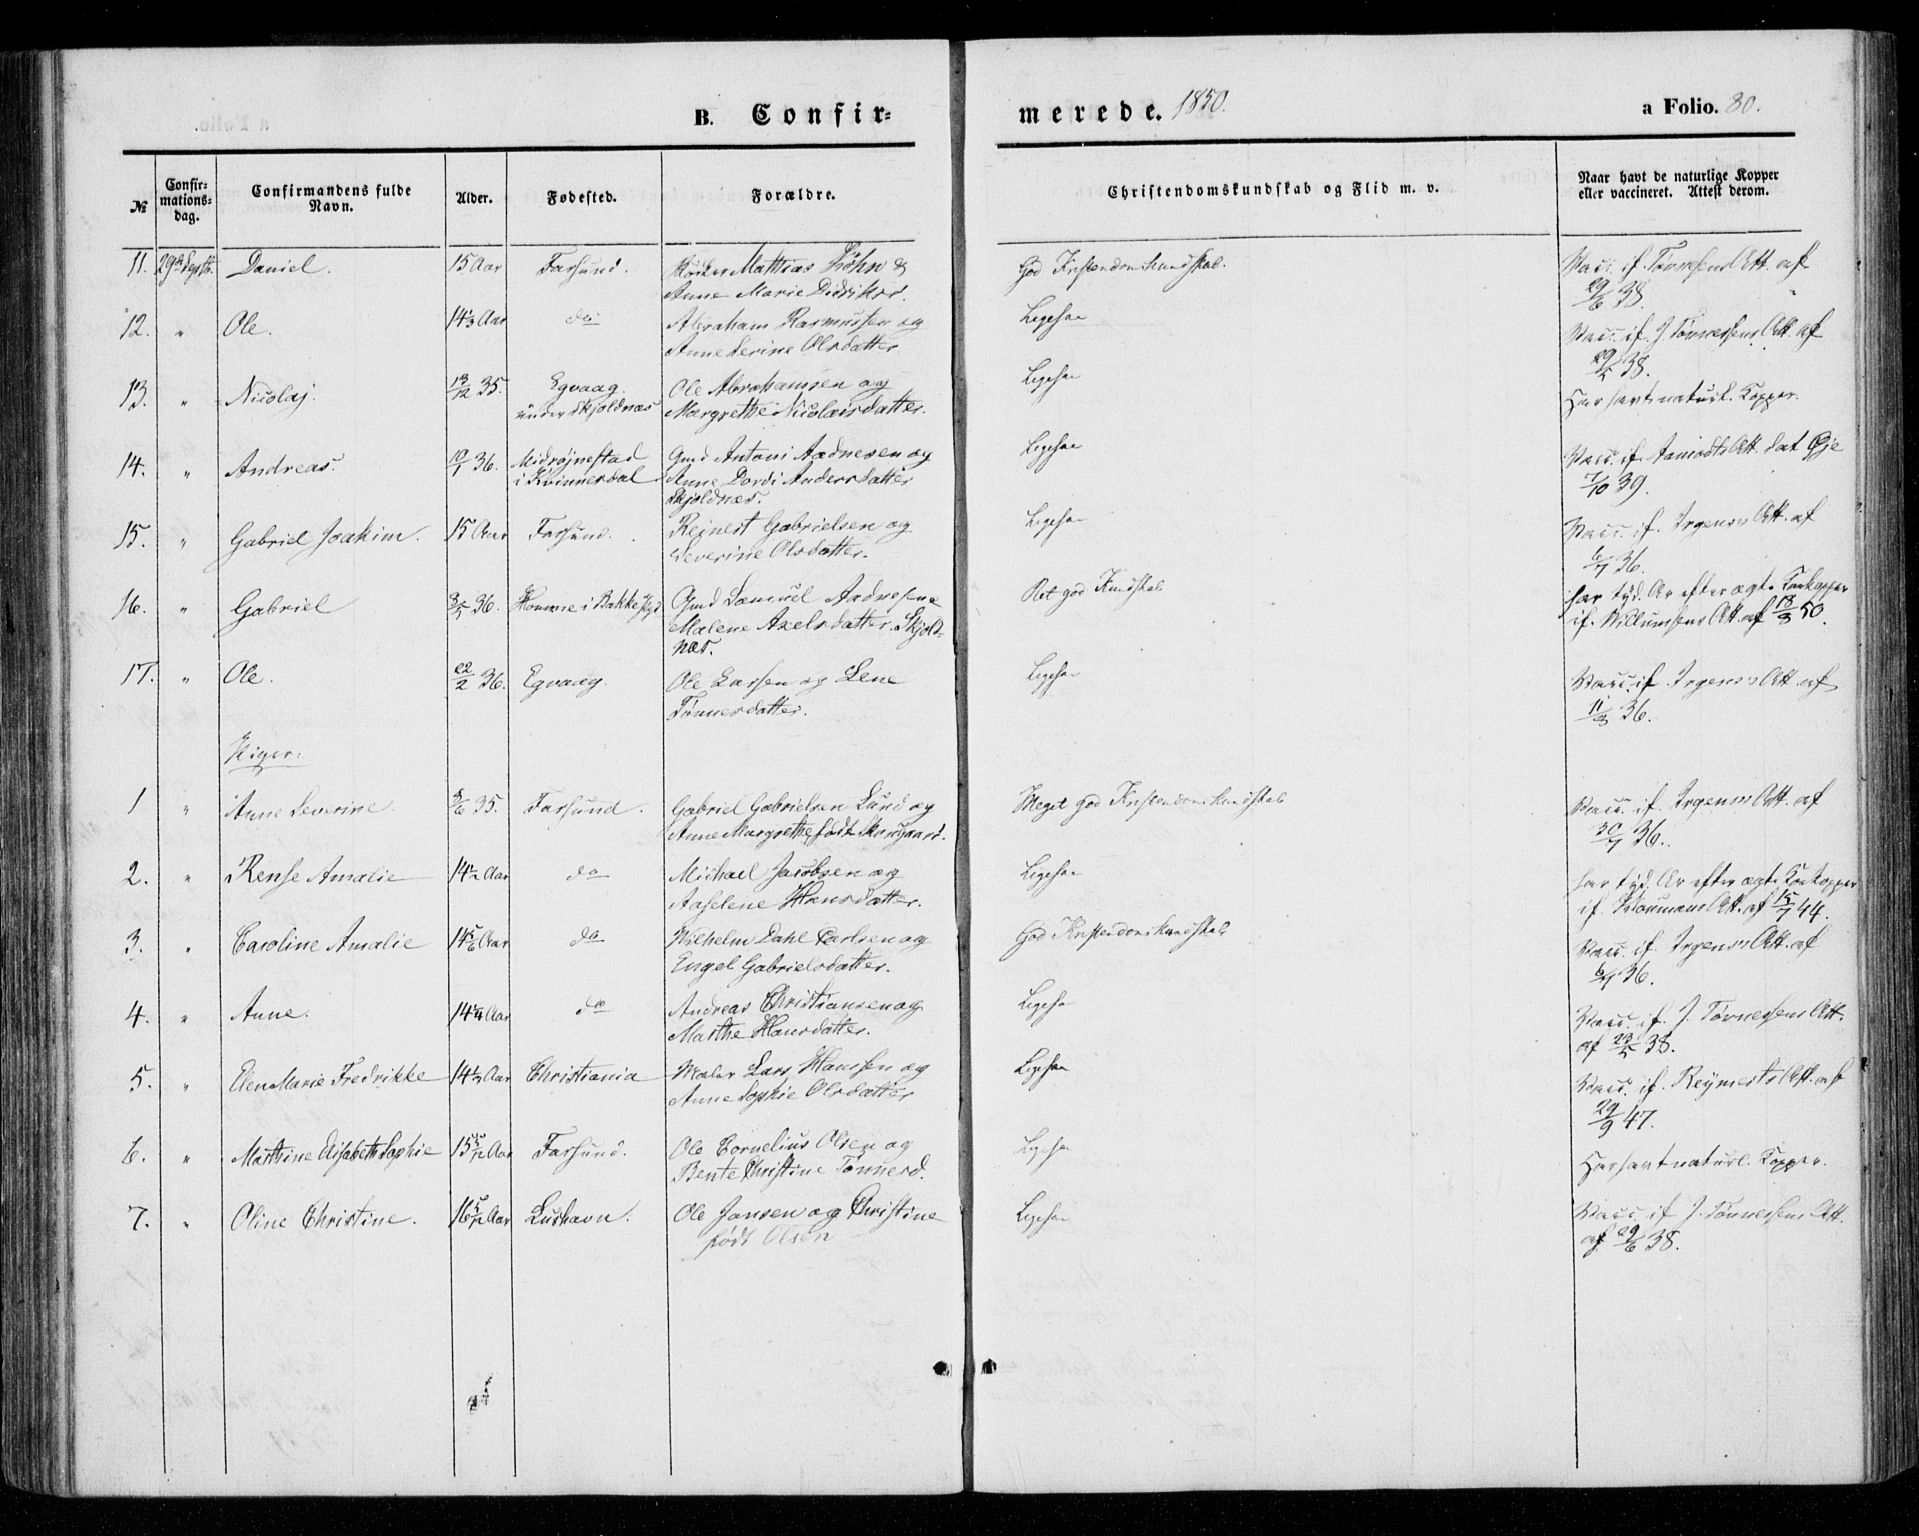 B. Confir-
merede. 1850.
a Folio. 80.
№
Confir-
mations-
dag.
Confirmandens fulde
Navn.
Alder.
Fødested.
Forældre.
Christendomskundskab og Flid m. v.
Naar havt de naturlige Kopper
eller vaccineret. Attest derom.
11. 29de Septb. Daniel. 15 Aar Farsund. Mathias Løhn &
Anne Marie Didriks.
God Kristendomskundskab.
Vacc. if. Tønnesens Att. af
29/6 38.
12. " Ole. 14 1/3 Aar do Abraham Rasmussen og
Anne Serine Olsdatter.
Ligesaa
Vacc. if. J. Tønnessens Att. af
29/5 38.
13. " Nicolaj. 13/12 35. Egvaag
under Skjoldnæs
Ole Abrahamsen og
Margrethe Nicolaisdatter.
Ligesaa
Har havt naturl. Kopper.
14. " Andreas. 10/1 36. Midrøjnestad
i Qvinnesdal
Gmd Antoni Aadnesen og
Anne Dordi Andersdatter
Skjoldnæs.
Ligesaa
Vacc. if. Aamodts Att. dat Øje
7/10 39.
15. " Gabriel Joakim. 15 Aar Farsund. Reinert Gabrielsen og
Severine Olsdatter.
Ligesaa
Vacc. if. Irgens's Att. af
6/7 36.
16. " Gabriel 3/5 36. i Bakke Gmd Samuel Aadnesen &
Malene Axelsdatter. Skjold-
næs.
Ret god Kundskab
har tyd. Ar efter ægte Kokopper
if. Willumsens Att. af 18/8 50.
17. " Ole. 22/2 36. Egvaag Ole Larsen og Lene
Tønnesdatter.
Ligesaa
Vacc. if. Irgens's Att. af
11/8 36.
Piger:
1 " Anne Severine. 5/6 35. Farsund. Gabriel Gabrielsen Lund og
Anne Margrethe født
Meget god Kristendomskundskab
Vacc. if. Irgens's Att. af
30/7 36.
2. " Rense Amalie 14 1/2 Aar do Michael Jacobsen og
Aaselene Hansdatter.
Ligesaa
har tyd. Ar efter ægte Kokopper
if. Att. af 15/7 44.
3. " Caroline Amalie 14 5/6 Aar do Wilhelm Dahl Carlsen og
Engel Gabrielsdatter.
God Kristendomskundskab
Vacc. if. Irgens's Att. af
6/7 36.
4. " Anne. 14 1/4 Aar do Andreas Christiansen og
Marthe Hansdatter.
Ligesaa
Vacc. if. J. Tønnessens Att.
af 23/5 38.
5. " Elen Marie Fredrikke 14 1/2 Aar Christiania Maler Lars Hansen og
Anne Sophie Olsdatter
Ligesaa
Vacc. if. Reymerts Att. af
29/9 47.
6. " Marthine Elisabeth Sophie 15 5/12 Aar Farsund. Ole Cornelius Olsen og
Bente Christine Tønnesd.
Ligesaa
Har havt naturl. Kopper.
7. " Oline Christine. 16 5/12 Aar Lushavn. Ole Jansen og Christine
født Olsen
Ligesaa
Vacc. if J. Tønnessens Att.
af 29/6 38.